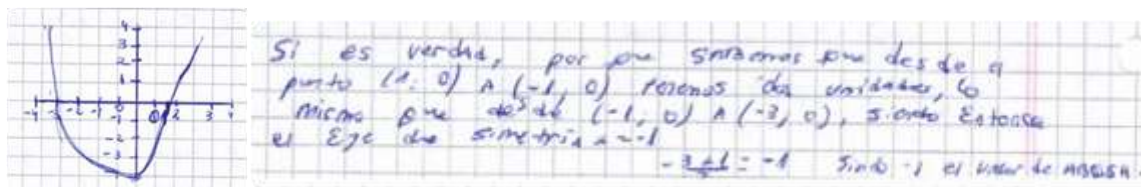 4
3
2
1
-4 -3 -2 -1 0 1 2 3 4
-1
-2
-3
Si es verdad, por que sabemos que desde q
punto (1, 0) A (-1, 0) tenemos dos unidades, lo
mismo que desde (-1, 0) A (-3, 0), siendo Entonces
el Eje de simetria = -1
-3+1 = -1 Siendo -1 el valor de